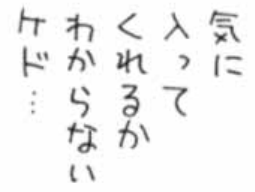 気に
入って
くれるか
わからない
ケド…